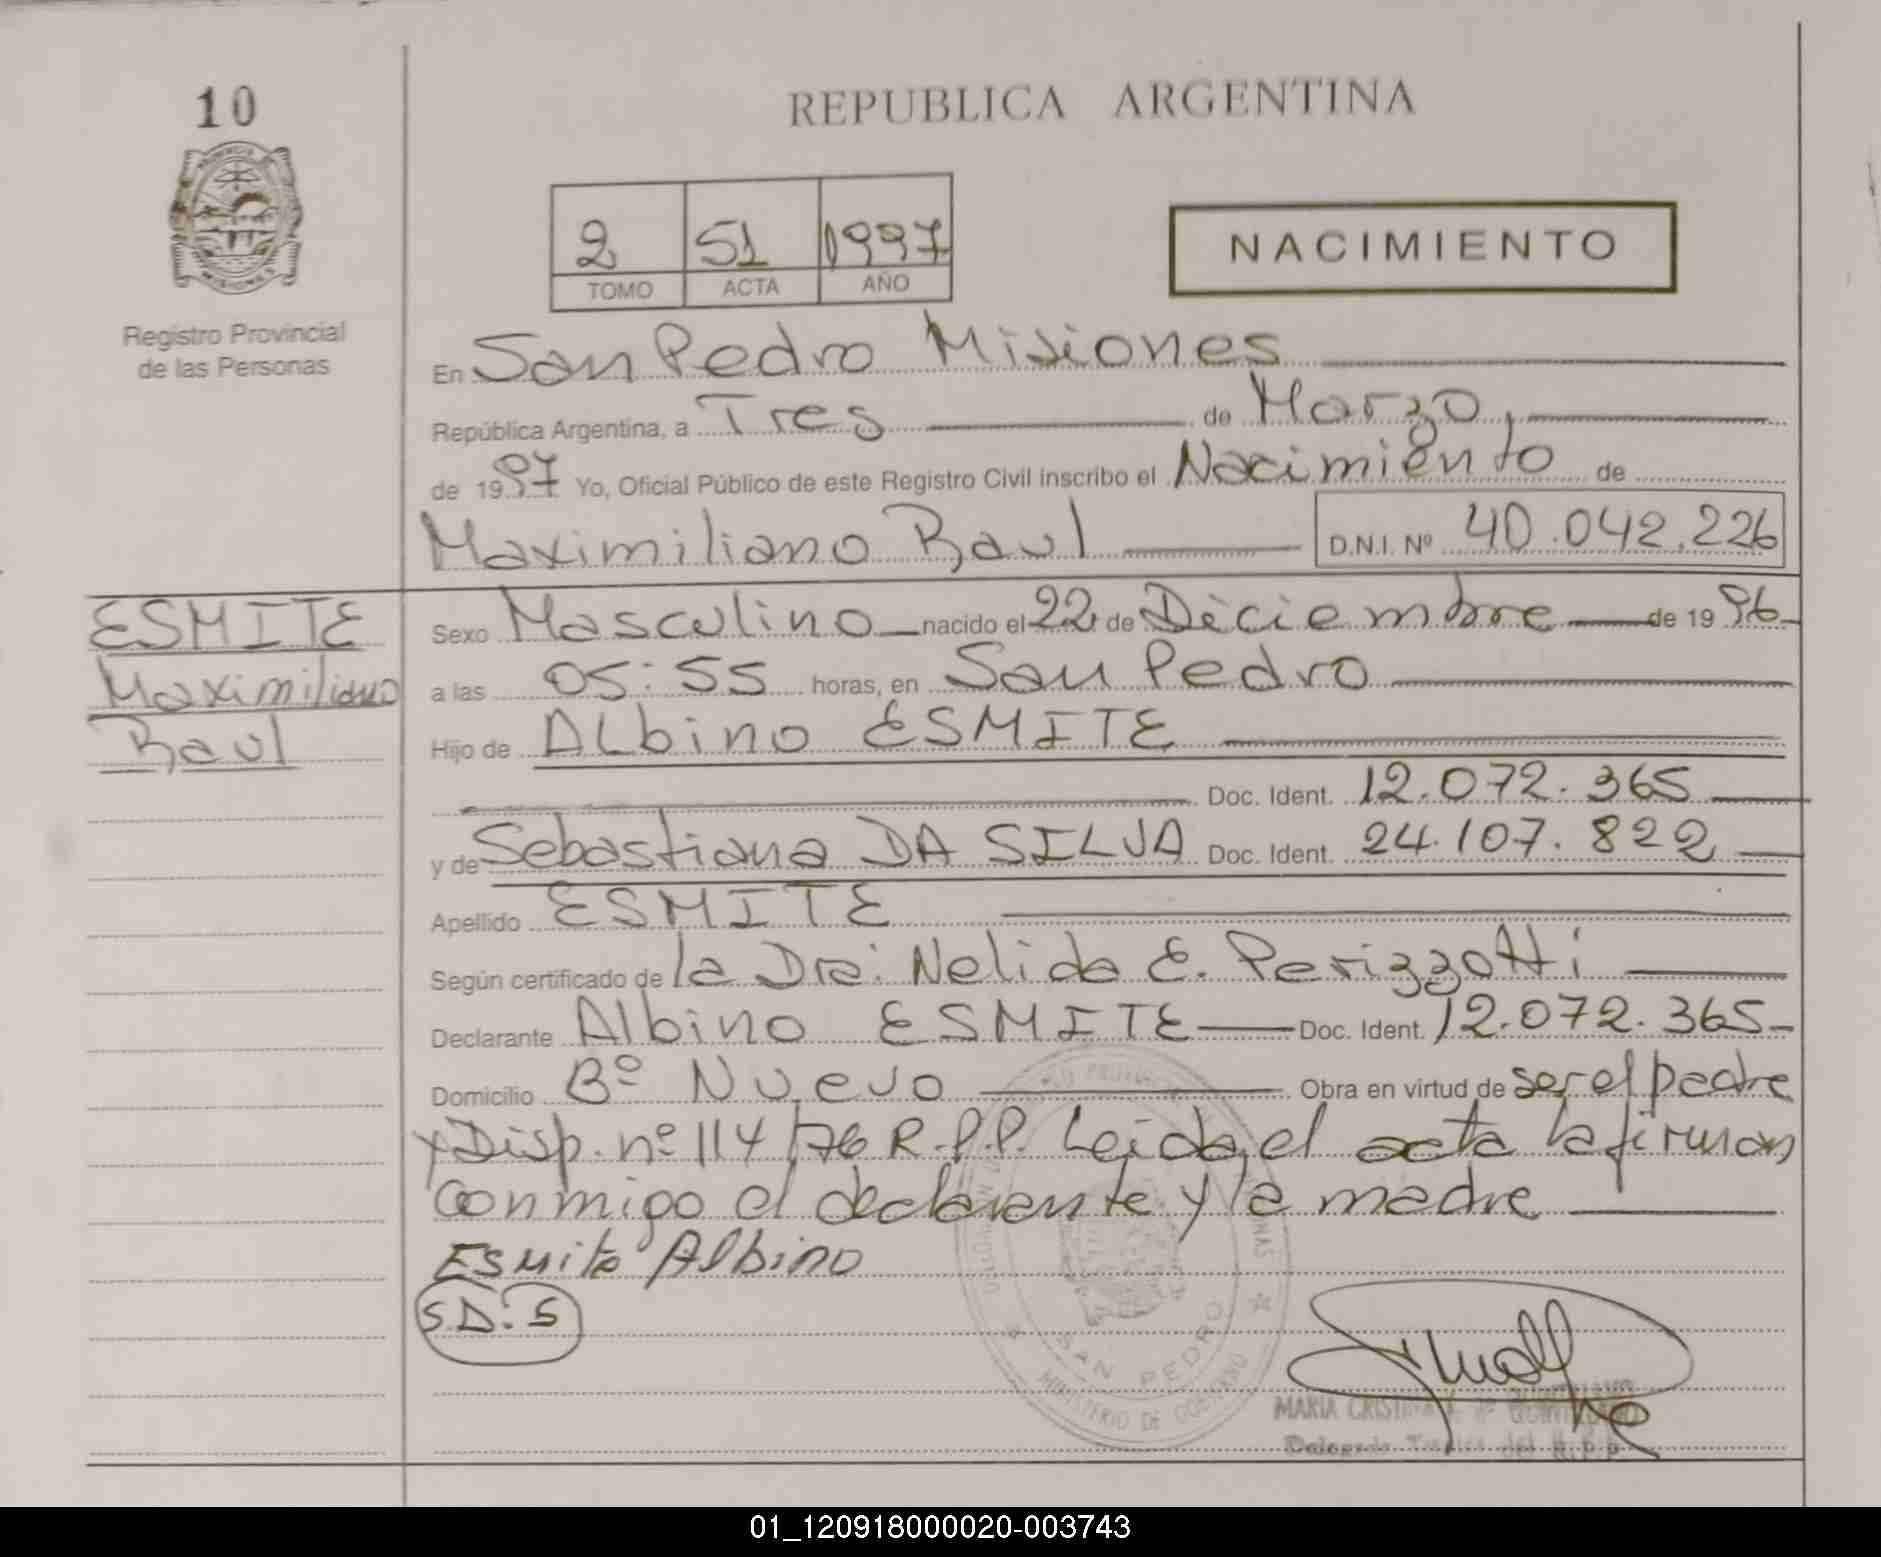 10
REPUBLICA ARGENTINA
PROVINCIA
MISIONES
Registro Provincial
de las Personas
2 51 1997
TOMO ACTA AÑO
NACIMIENTO
En San Pedro Misiones
República Argentina, a Tres de Marzo,
de 1997 Yo, Oficial Público de este Registro Civil inscribo el Nacimiento de
Maximiliano Raul D.N.I. Nº 40.042.226
ESMITE
Maximiliano
Raul
Sexo Masculino nacido el 22 de Diciembre de 1996
a las 05:55 horas, en San Pedro
Hijo de Albino ESMITE
Doc. Ident. 12.072.365
y de Sebastiana DA SILVA Doc. Ident. 24.107.822
Apellido ESMITE
Según certificado de la Dra. Nelida E. Perizzotti
Declarante Albino ESMITE Doc. Ident. 12.072.365
Domicilio Bº Nuevo Obra en virtud de ser el padre
y Disp. nº 114/76 R.P.P. Leida el acta la firman
conmigo el declarante y la madre
Esmite Albino
S.D.S
SAN PEDRO
MINISTERIO DE GOBIERNO
MARIA CRISTINA
01_120918000020-003743